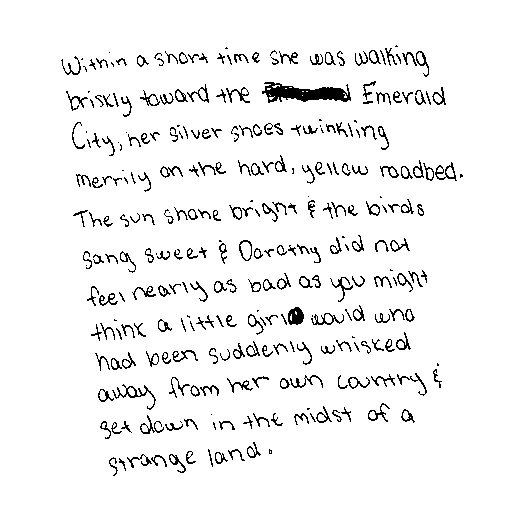 Within a short time she was walking
briskly toward the Emerald
City, her silver shoes twinkling
merrily on the hard, yellow roadbed.
The sun shone bright & the birds
sang sweet & Dorothy did not
feel nearly as bad as you might
think a little girl would who
had been suddenly whisked
away from her own country &
set down in the midst of a
strange land.